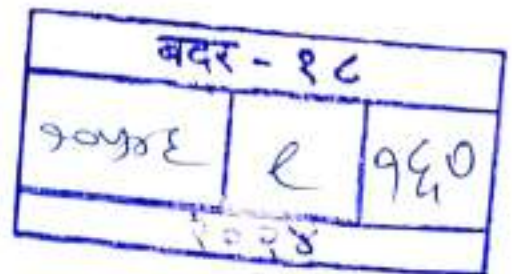 बदर - १८
१०५४६ ९ १६०
२०२४